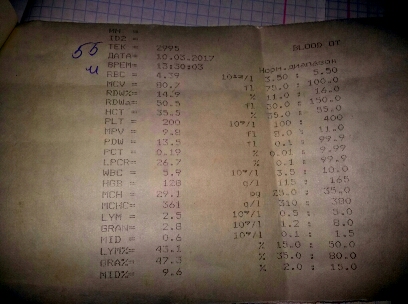 ID2 =
ТЕК = 2995 BLOOD.DT
ДАТА= 10.03.2017
ВРЕМ= 13:30:03
56 ч
RBC = 4.39 3.50 : 5.50
MCV = 80.7 fl 75.0 : 100.0
RDW%= 14.9 % 11.0 : 16.0
RDWa= 50.5 fl 30.0 : 150.0
HCT = 35.5 % 35.0 : 55.0
PLT = 200 10^9/l 100 : 400
MPV = 9.8 fl 8.0 : 11.0
PDW = 13.5 fl 0.1 : 99.9
PCT = 0.19 % 0.01 : 9.99
LPCR= 26.7 % 0.1 : 99.9
WBC = 5.9 10^9/l 3.5 : 10.0
HGB = 128 g/l 115 : 165
MCH = 29.1 pg 25.0 : 35.0
MCHC= 361 g/l 310 : 380
LYM = 2.5 10^9/l 0.5 : 5.0
GRAN= 2.8 10^9/l 1.2 : 8.0
MID = 0.6 10^9/l 0.1 : 1.5
LYM%= 43.1 % 15.0 : 50.0
GRA%= 47.3 % 35.0 : 80.0
MID%= 9.6 % 2.0 : 15.0